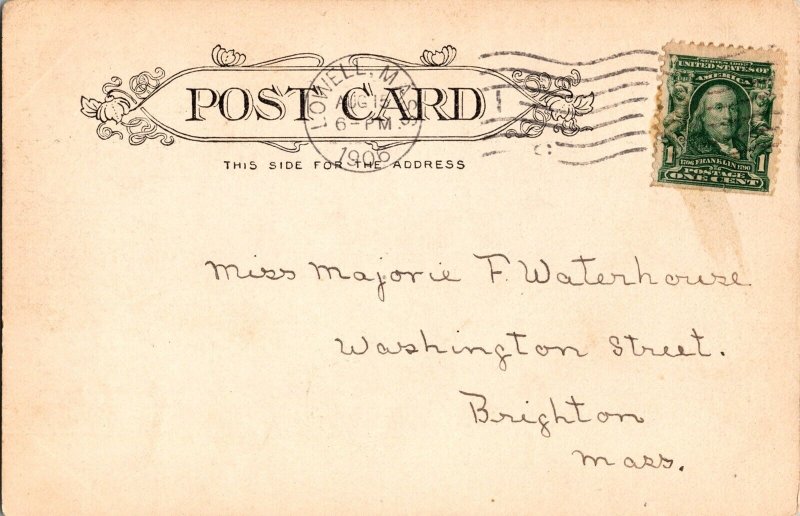 POST CARD
THIS SIDE FOR THE ADDRESS
LOWELL, MASS.
AUG 15
6-PM
1906
SERIES 1902
UNITED STATES OF
AMERICA
1706 FRANKLIN 1790
1 1
POSTAGE
ONE CENT
Miss Majorie F. Waterhouse
Washington Street.
Brighton
Mass.